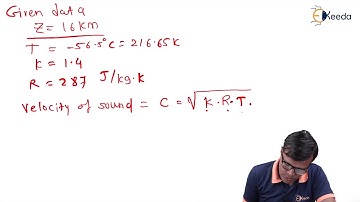 Given data
Z = 16 km
T = -56.5°C = 216.65K
K = 1.4
R = 287 J/kg.K
Velocity of sound = C = √K.R.T.
Ekeeda